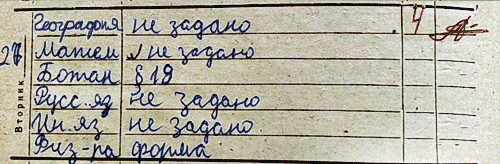 География не задано 4
27 Матем не задано
Ботан § 19
Русс. яз не задано
Ин. яз не задано
Физ-ра форма
Вторник